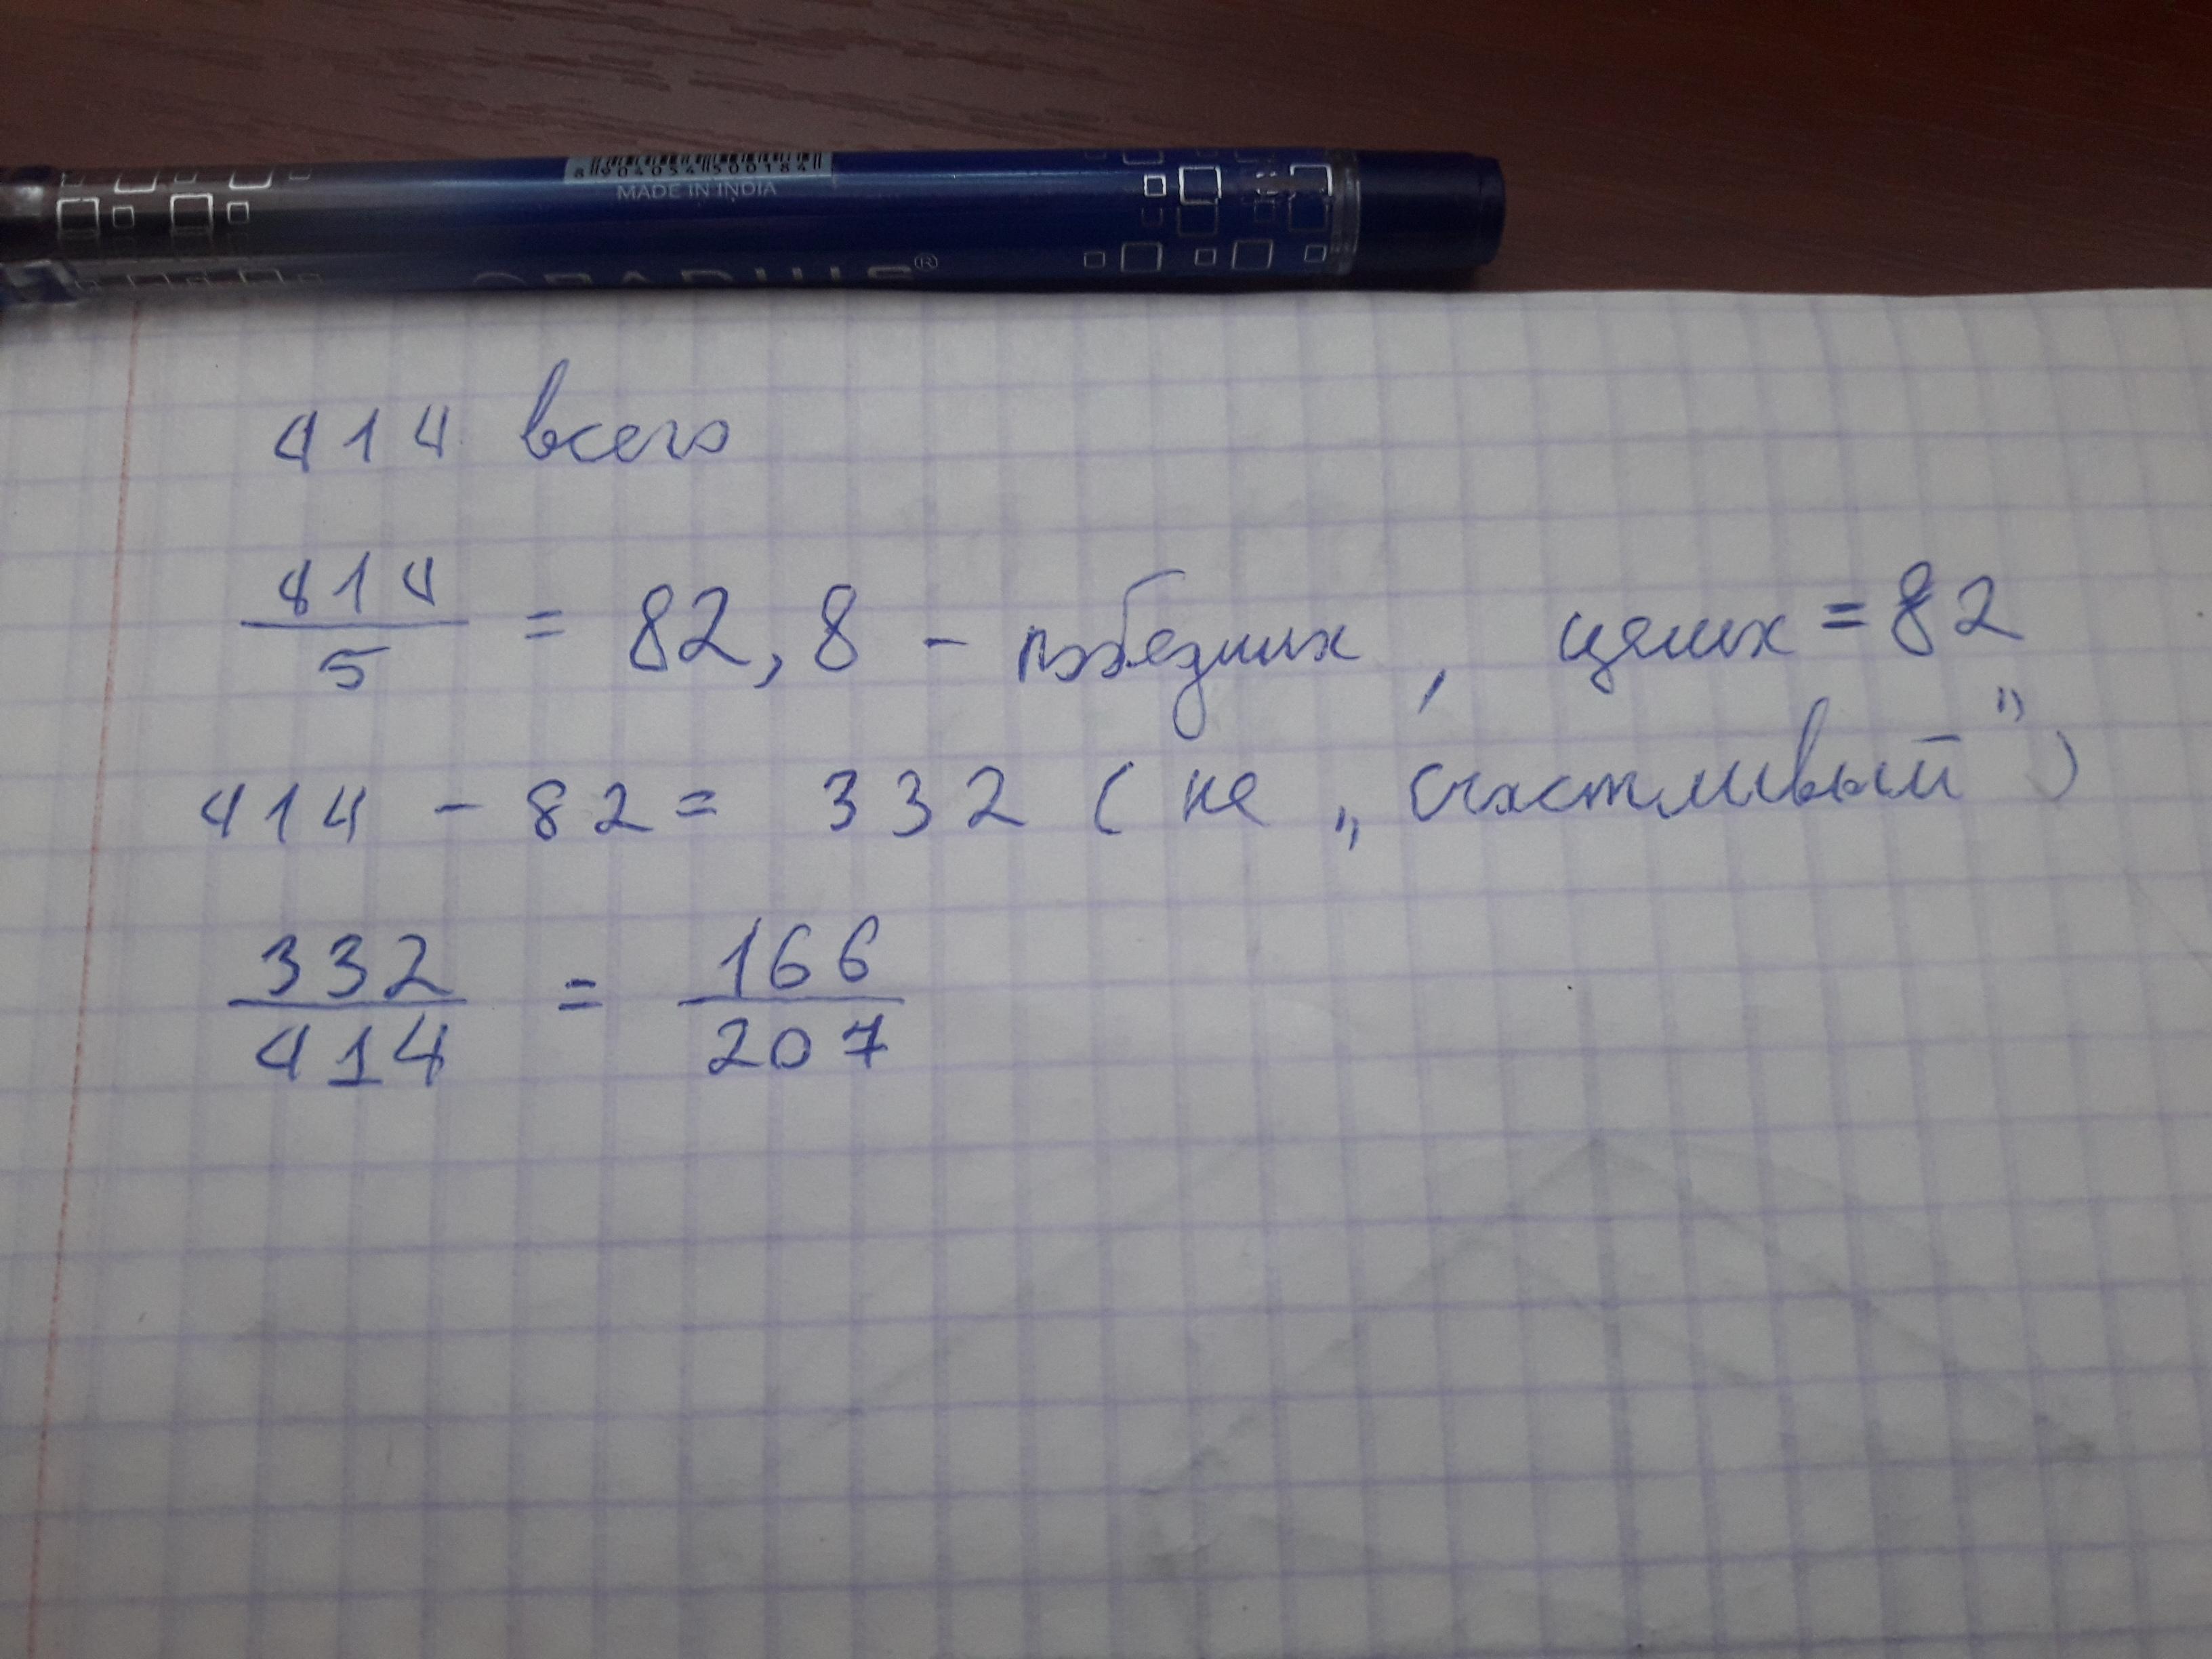 8904054500184
MADE IN INDIA
®
414 всего
414/5 = 82,8 - победних, целих = 82
414 - 82 = 332 (не „счастливый”)
332/414 = 166/207